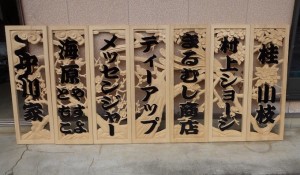 桂 小枝
村上ショージ
まるむし商店
ティーアップ
メッセンジャー
海原やすよ
ともこ
中川家